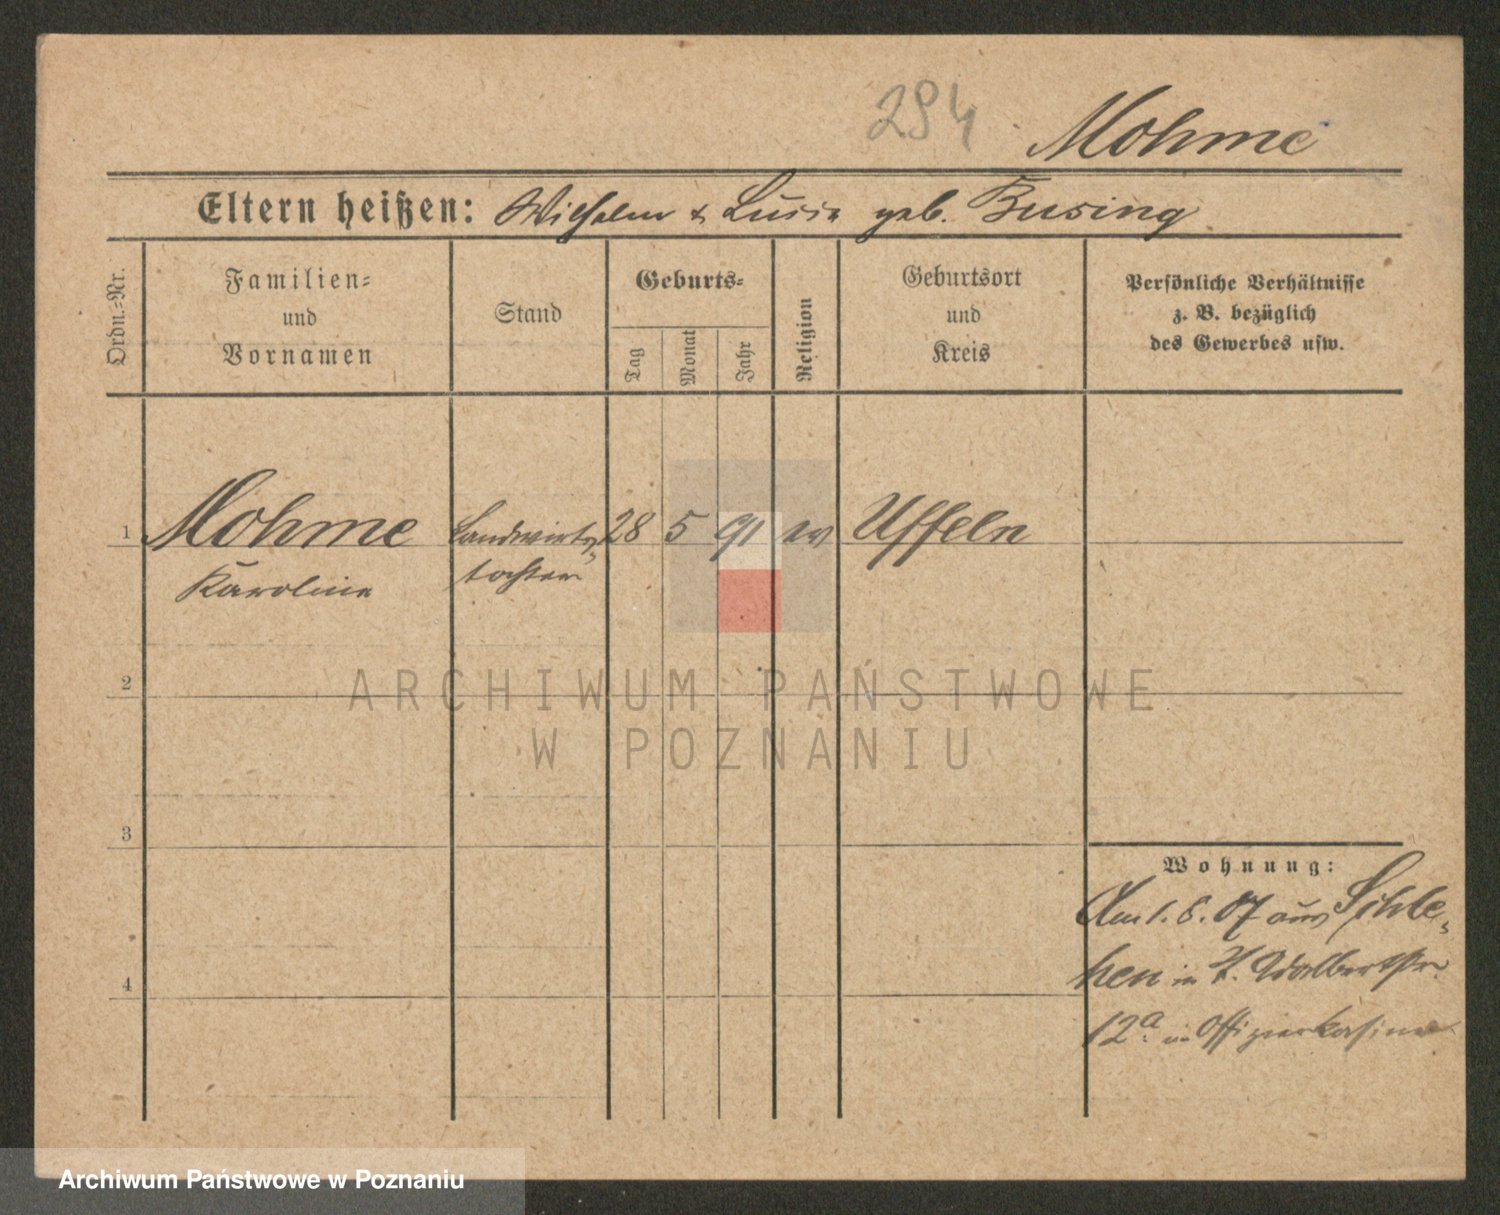 294 Mohme
Eltern heißen: Wilhelm & Luise geb. Busing
Ordn.-Nr.
Familien-
und
Vornamen
Stand
Geburts-
Tag
Monat
Jahr
Religion
Geburtsort
und
Kreis
Persönliche Verhältnisse
z. B. bezüglich
des Gewerbes usw.
1 Mohme Landwirts- 28 5 91 ev Uffeln
Karoline tochter
2
ARCHIWUM PAŃSTWOWE
W POZNANIU
3
4
Wohnung:
Am 1. 6. 07 aus Schle-
hen in Adalbertstr
12a in Offizierkasino
Archiwum Państwowe w Poznaniu